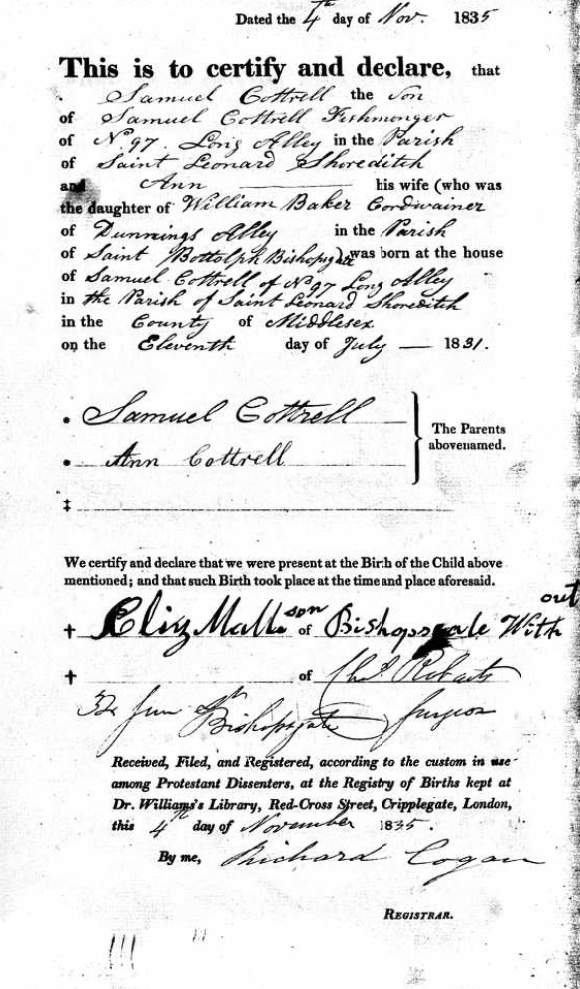 Dated the 4th day of Nov. 1835
This is to certify and declare, that
Samuel Cottrell the Son
of Samuel Cottrell Fishmonger
of No 97. Long Alley in the Parish
of Saint Leonard Shoreditch
and Ann his wife (who was
the daughter of William Baker Cordwainer
of Dunnings Alley in the Parish
of Saint Bottolph Bishopsgate) was born at the house
of Samuel Cottrell of No 97 Long Alley
in the Parish of Saint Leonard Shoreditch
in the County of Middlesex
on the Eleventh day of July — 1831.
Samuel Cottrell
Ann Cottrell
The Parents
abovenamed.
‡
We certify and declare that we were present at the Birth of the Child above
mentioned; and that such Birth took place at the time and place aforesaid.
† Eliz Mallson of Bishopsgate Without
† of Chas Roberts
Bishopsgate Surgeon
Received, Filed, and Registered, according to the custom in use
among Protestant Dissenters, at the Registry of Births kept at
Dr. Williams's Library, Red-Cross Street, Cripplegate, London,
this 4th day of November 1835.
By me, Richard Cogan
REGISTRAR.